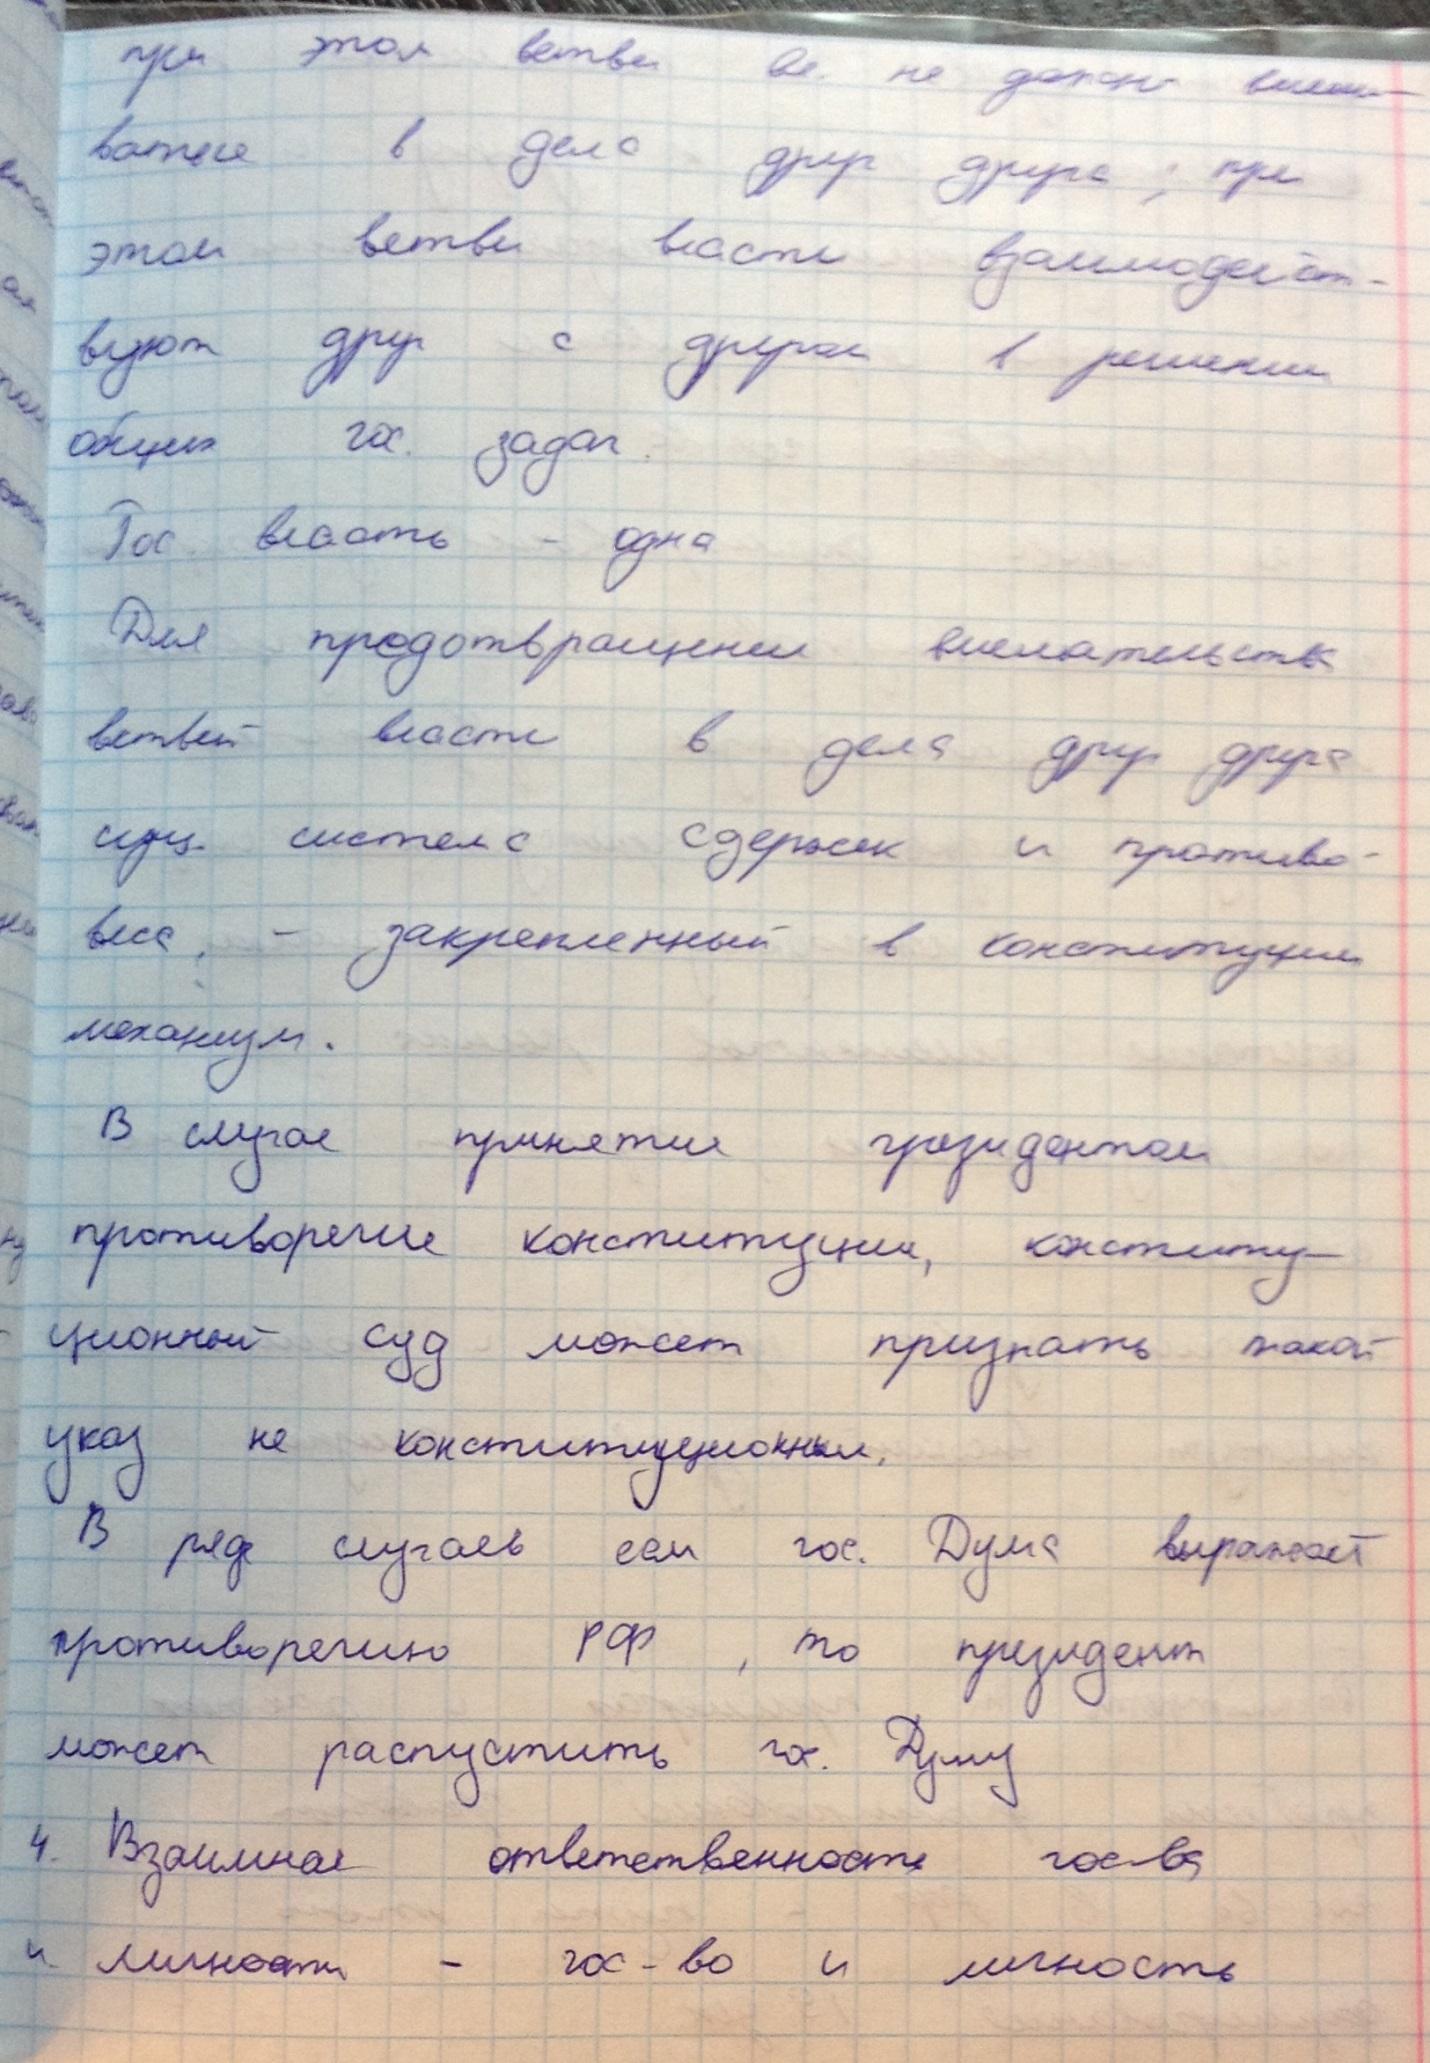 при этом ветви вл. не должны вмеши-
ваться в дела друг друга; при
этом ветви власти взаимодейст-
вуют друг с другом в решении
общих гос. задач.
Гос. власть - одна
Для предотвращения вмешательства
ветвей власти в дела друг друга
сущ. система сдержек и противо-
веса, - закрепленный в конституции
механизм.
В случае принятия президентом
противоречие конституции, конститу-
ционный суд может признать такой
указ не конституционным.
В ряде случаев если гос. Дума выражает
противоречию РФ, то президент
может распустить гос. Думу
4. Взаимная ответственность гос-ва
и личности - гос-во и личность